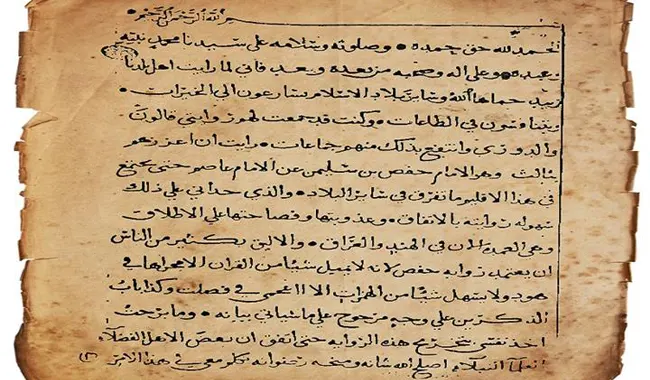 بسم الله الرحمن الرحيم
الحمد لله حق حمده وصلوته وسلامه على سيدنا محمد نبيه
وعبده وعلى اله وصحبه من بعده وبعد فاني لما رايت اهل بلدنا
زبيد حماها الله وساير بلاد الاسلام يسارعون الى الخيرات
ويتنافسون في الطاعات وكنت قد جمعت لهم رواية قالون
والدوري وانتفع بذلك منهم جماعات رايت ان اعززهما
بثالث وهو الامام حفص بن سليمن عن الامام عاصم حتى يجتمع
في هذا الاقليم ما تفرق في ساير البلاد والذي حداني على ذلك
سهولة روايته بالاتفاق وعذوبتها وفصاحتها على الاطلاق
وهي العمدة الان في الهند والعراق والاليق بكثير من الناس
ان يعتمد رواية حفص لانه لا يميل شيئا من القران الا مجراها في
هود ولا يسهل شيئا من الهمزات الا ااعجمي في فصلت وكذا باب
الذكرين على وجه مرجوح على ما سياتي بيانه وما برحت
احدث نفسي بتخريج هذه الرواية حتى اتفق ان بعض الاهل الفضلاء
النبلاء اصلح الله شانه ومنحه رضوانه تكلم معي في هذا الامر